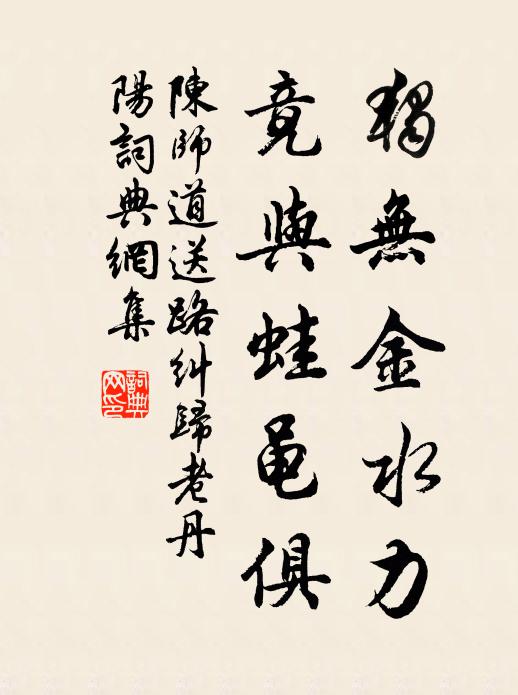 獨無金水力
竟與蛙黽俱
陳師道送路糾歸老丹
陽詞典網集
詞典
网印